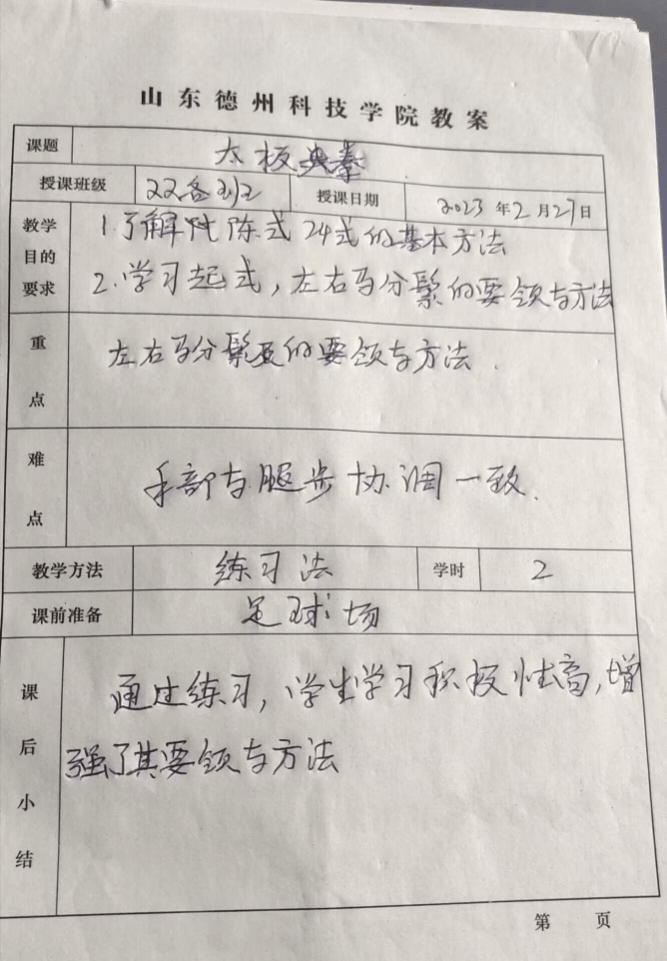 山东德州科技学院教案
课题 太极拳
授课班级 22各班 授课日期 2023年2月27日
教学目的要求 1.了解陈式24式的基本方法
2.学习起式，左右马分鬃的要领与方法
重点 左右马分鬃的要领与方法.
难点 手部与腿步协调一致.
教学方法 练习法 学时 2
课前准备 足球场
课后小结 通过练习，学生学习积极性高，增
强了其要领与方法
第 页